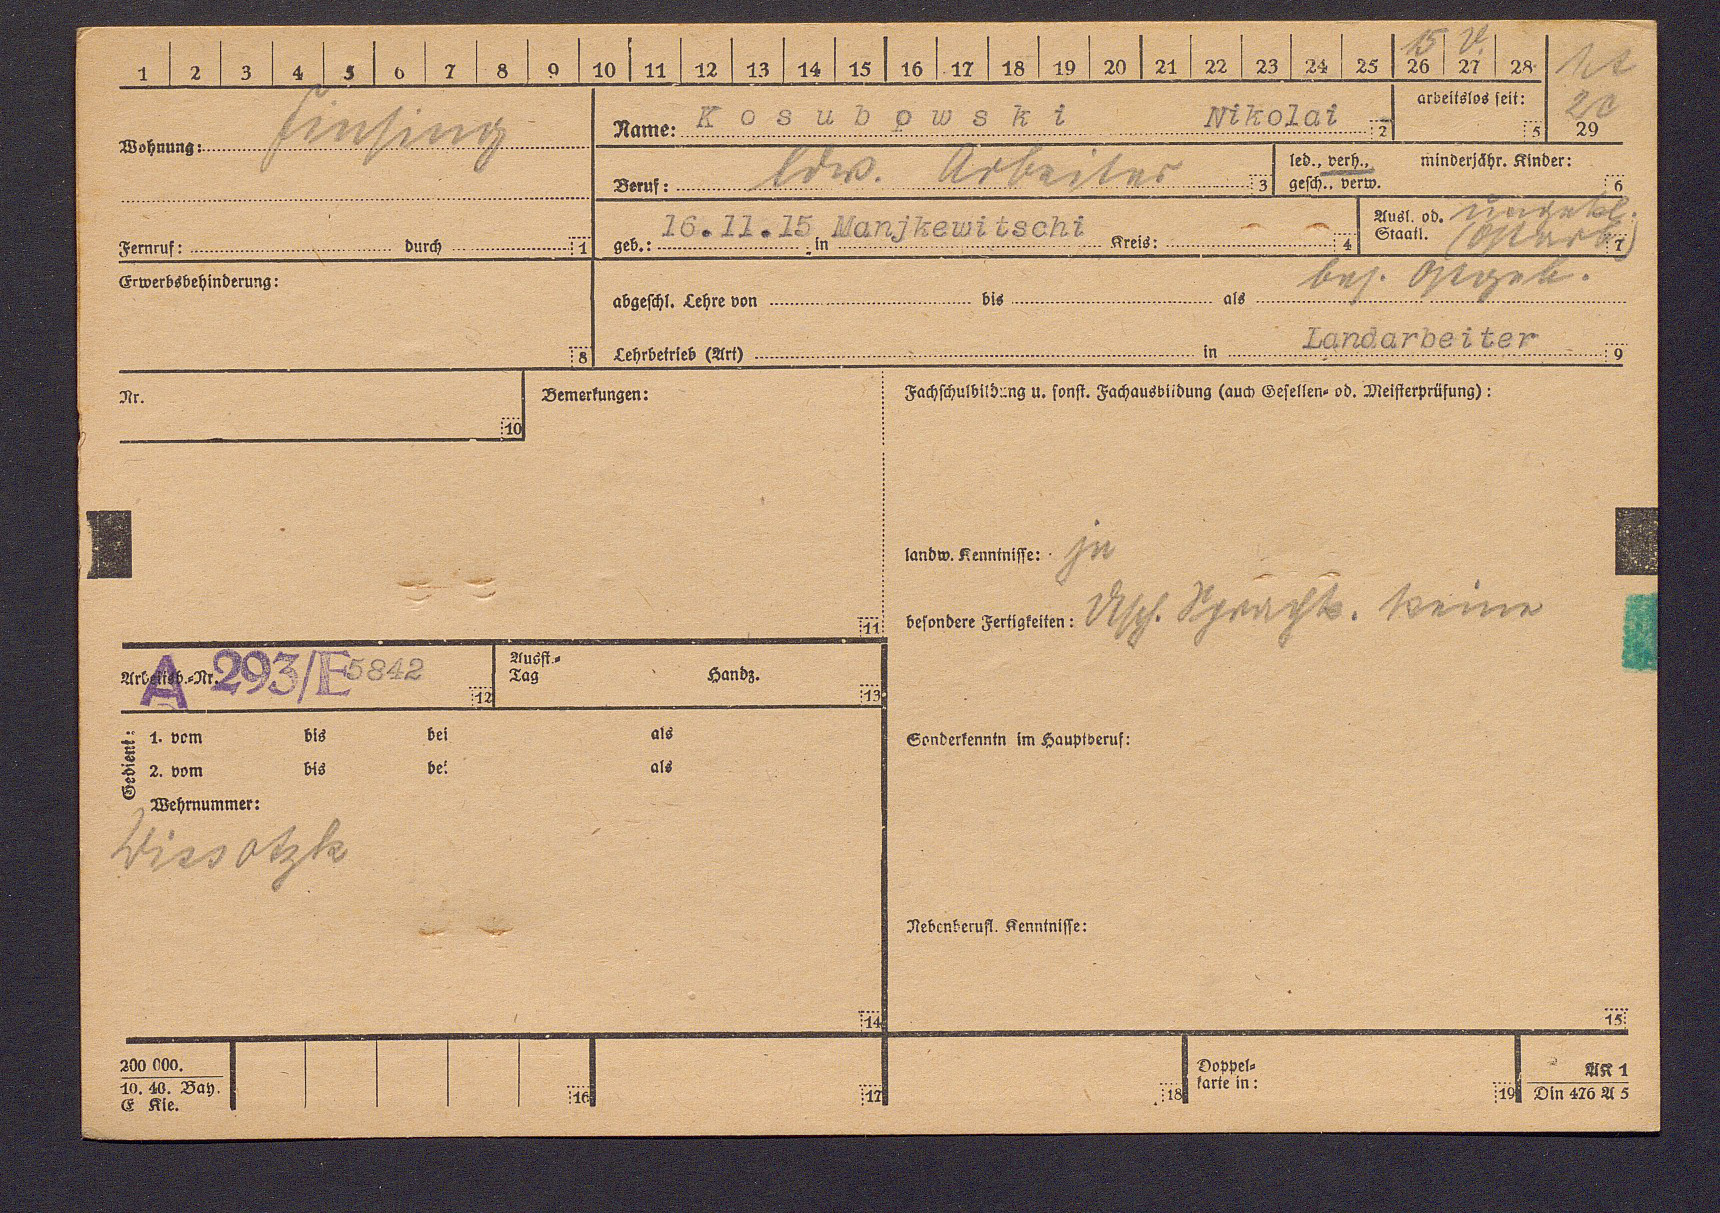 1 2 3 4 5 6 7 8 9 10 11 12 13 14 15 16 17 18 19 20 21 22 23 24 25 26 27 28 29
15 V.
20
Wohnung: Finsing
Name: Kosubowski Nikolai 2
arbeitslos seit: 5
Beruf: ldw. Arbeiter 3
led., verh., gesch., verw.
minderjähr. Kinder: 6
Fernruf: durch 1
geb.: 16.11.15 in Manjkewitschi Kreis: 4
Ausl. od. Staatl. ungekl. (Ostarb.) 7
bes. Ostgeb.
Erwerbsbehinderung: 8
abgeschl. Lehre von bis als
Lehrbetrieb (Art) in Landarbeiter 9
Nr. 10
Bemerkungen: 11
Fachschulbildung u. sonst. Fachausbildung (auch Gesellen- od. Meisterprüfung):
landw. Kenntnisse: ja
besondere Fertigkeiten: Dtsch. Sprachk. keine
Arbeitsb.-Nr. A 293/E 5842 12
Ausst.-Tag Handz. 13
Gedient:
1. vom bis bei als
2. vom bis bei als
Wehrnummer:
Wissotzk
14
Sonderkenntn im Hauptberuf:
Nebenberufl. Kenntnisse:
15
200 000.
10. 40. Bay.
E Kie.
16 17 18
Doppel-
karte in: 19
AK 1
Din 476 A 5